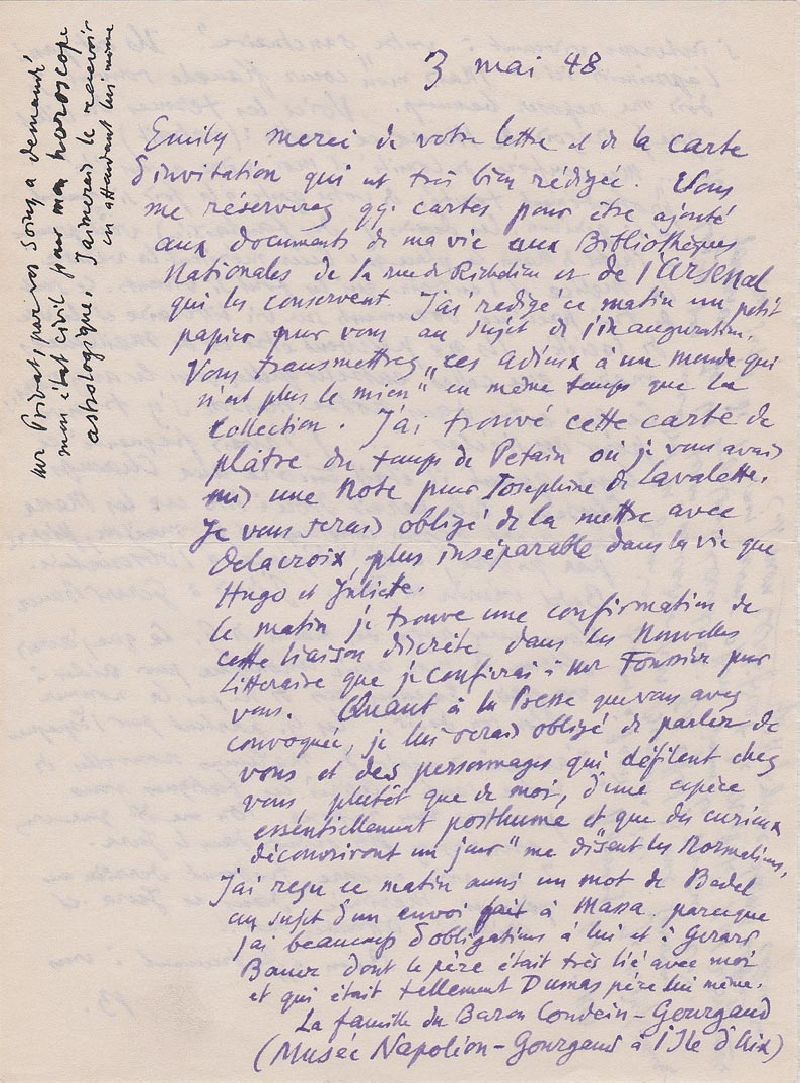 3 mai 48
Emily merci de votre lettre et de la carte
d'invitation qui est très bien rédigée. Vous
me réserverez qq. cartes pour être ajouté
aux documents de ma vie aux Bibliothèques
Nationales de la rue de Richelieu et de l'Arsenal
qui les conservent J'ai redigé ce matin un petit
papier pour vous au sujet de l'inauguration.
Vous transmettrez "ces adieux à un monde qui
n'est plus le mien" en même temps que la
collection. J'ai trouvé cette carte de
plâtre du temps de Petain où je vous avais
mis une note pour Josephine de Lavalette.
Je vous serais obligé de la mettre avec
Delacroix, plus inséparable dans la vie que
Hugo et Juliette.
Ce matin je trouve une confirmation de
cette liaison discrète dans les Nouvelles
Litteraire que je confirai à Mr Foussier pour
vous. Quant à la Presse que vous avez
convoquée, je lui serais obligé de parler de
vous et des personnages qui défilent chez
vous plutôt que de moi, d'une espèce
essentiellement posthume et que des curieux
découvriront un jour" me disent les Normaliens,
J'ai reçu ce matin aussi un mot de Badel
au sujet d'un envoi fait à Massa. parceque
j'ai beaucoup d'obligations à lui et à Gerard
Bauer dont le père était très lié avec moi
et qui était tellement Dumas père lui même.
La famille du Baron Coudein-Gourgaud
(Musée Napoléon-Gourgaud à l'Ile d'Aix)
Mr Privat, par vos soins a demandé
mon état civil pour mon horoscope
astrologique. J'aimerais le recevoir
en attendant lui même